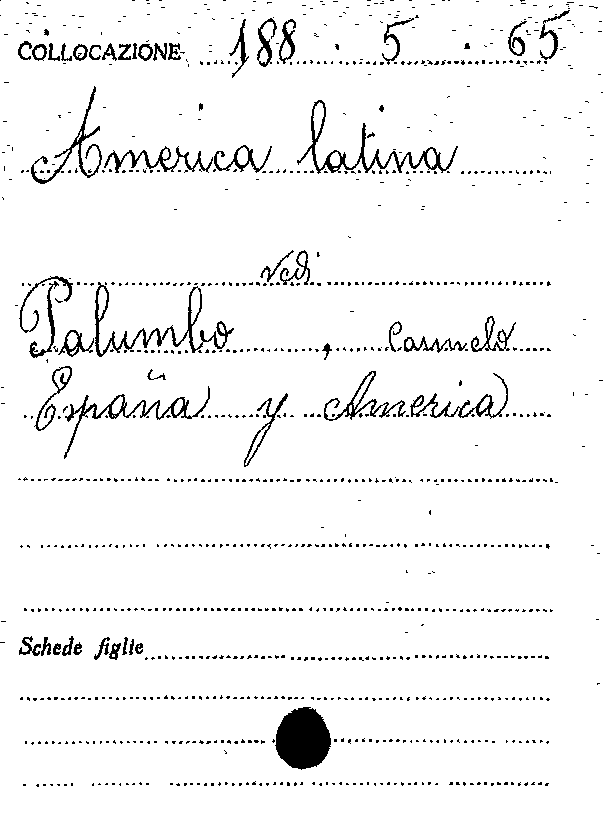 COLLOCAZIONE 188 . 5 . 65
America latina
vedi
Palumbo, Carmelo
España y America
Schede figlie